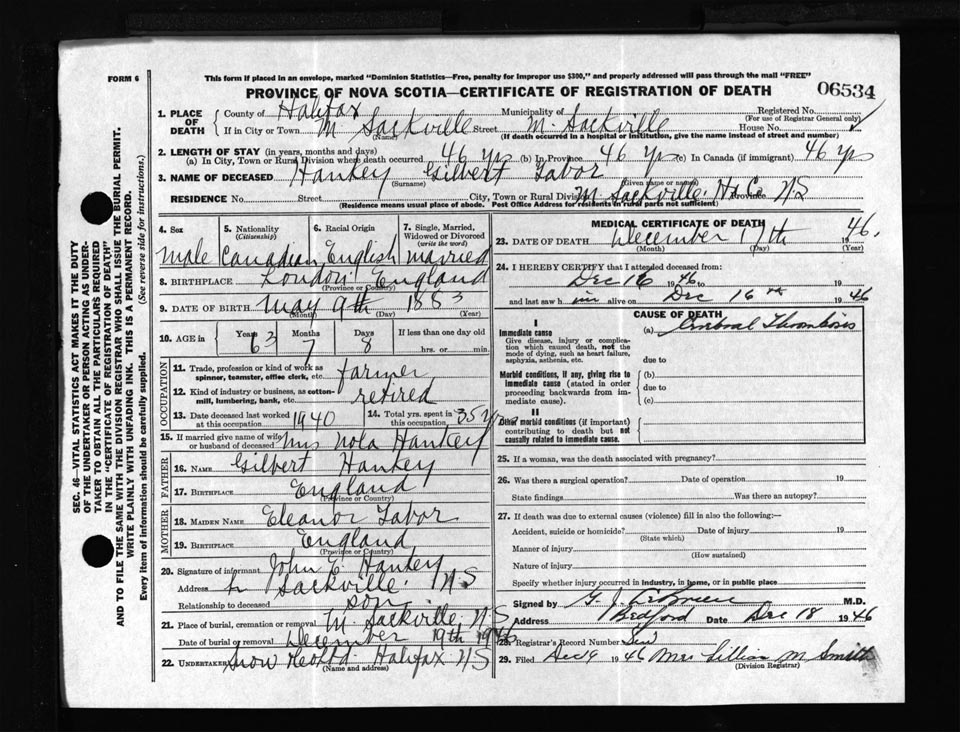 FORM 6
This form if placed in an envelope, marked "Dominion Statistics—Free, penalty for improper use $300," and properly addressed will pass through the mail "FREE"
PROVINCE OF NOVA SCOTIA—CERTIFICATE OF REGISTRATION OF DEATH
06534
SEC. 46—VITAL STATISTICS ACT MAKES IT THE DUTY
OF THE UNDERTAKER OR PERSON ACTING AS UNDER-
TAKER TO OBTAIN ALL THE PARTICULARS REQUIRED
IN THE "CERTIFICATE OF REGISTRATION OF DEATH"
AND TO FILE THE SAME WITH THE DIVISION REGISTRAR WHO SHALL ISSUE THE BURIAL PERMIT.
WRITE PLAINLY WITH UNFADING INK. THIS IS A PERMANENT RECORD.
Every item of information should be carefully supplied. (See reverse side for instructions.)
1. PLACE OF DEATH
County of Halifax Municipality of Registered No.
(For use of Registrar General only)
If in City or Town M. Sackville Street M. Sackville House No.
(Name) (If death occurred in a hospital or institution, give the name instead of street and number)
2. LENGTH OF STAY (in years, months and days)
(a) In City, Town or Rural Division where death occurred 46 yrs (b) In Province 46 Yrs (c) In Canada (if immigrant) 46 Yrs
3. NAME OF DECEASED Hankey Gilbert Tabor
(Surname) (Given name or names)
RESIDENCE No. Street City, Town or Rural Division M. Sackville Hx Co. N.S Province
(Residence means usual place of abode. Post Office Address for residents in rural parts not sufficient)
4. Sex Male
5. Nationality (Citizenship) Canadian
6. Racial Origin English
7. Single, Married, Widowed or Divorced (write the word) married
8. BIRTHPLACE London England
(Province or Country)
9. DATE OF BIRTH May 9th 1883
(Month) (Day) (Year)
10. AGE in Years 63 Months 7 Days 8 If less than one day old
hrs. or min.
OCCUPATION
11. Trade, profession or kind of work as spinner, teamster, office clerk, etc. farmer
12. Kind of industry or business, as cotton-mill, lumbering, bank, etc. retired
13. Date deceased last worked at this occupation 1940
14. Total yrs. spent in this occupation 35 Yrs
15. If married give name of wife or husband of deceased Mrs Nola Hankey
FATHER
16. NAME Gilbert Hankey
17. BIRTHPLACE England
(Province or Country)
MOTHER
18. MAIDEN NAME Eleanor Tabor
19. BIRTHPLACE England
(Province or Country)
20. Signature of informant John E Hankey
Address Sackville N.S
Relationship to deceased son
21. Place of burial, cremation or removal M. Sackville, N.S,
Date of burial or removal December 19th 1946
22. UNDERTAKER Snow Halifax N.S
(Name and address)
MEDICAL CERTIFICATE OF DEATH
23. DATE OF DEATH December 17th 1946.
(Month) (Day) (Year)
24. I HEREBY CERTIFY that I attended deceased from:
Dec 16 1946 to 19
and last saw him alive on Dec 16th 1946
CAUSE OF DEATH
I
Immediate cause
Give disease, injury or complication which caused death, not the mode of dying, such as heart failure, asphyxia, asthenia, etc.
(a) Cerebral Thrombosis
due to
Morbid conditions, if any, giving rise to immediate cause (stated in order proceeding backwards from immediate cause).
(b)
due to
(c)
II
Other morbid conditions (if important) contributing to death but not causally related to immediate cause.
25. If a woman, was the death associated with pregnancy?
26. Was there a surgical operation? Date of operation 19
State findings Was there an autopsy?
27. If death was due to external causes (violence) fill in also the following:—
Accident, suicide or homicide? Date of injury 19
(State which)
Manner of injury
(How sustained)
Nature of injury
Specify whether injury occurred in industry, in home, or in public place
Signed by G. J. M.D.
Address Bedford Date Dec 18 1946
28. Registrar's Record Number
29. Filed Dec 9 1946 Mrs Lillian M Smith
(Division Registrar)